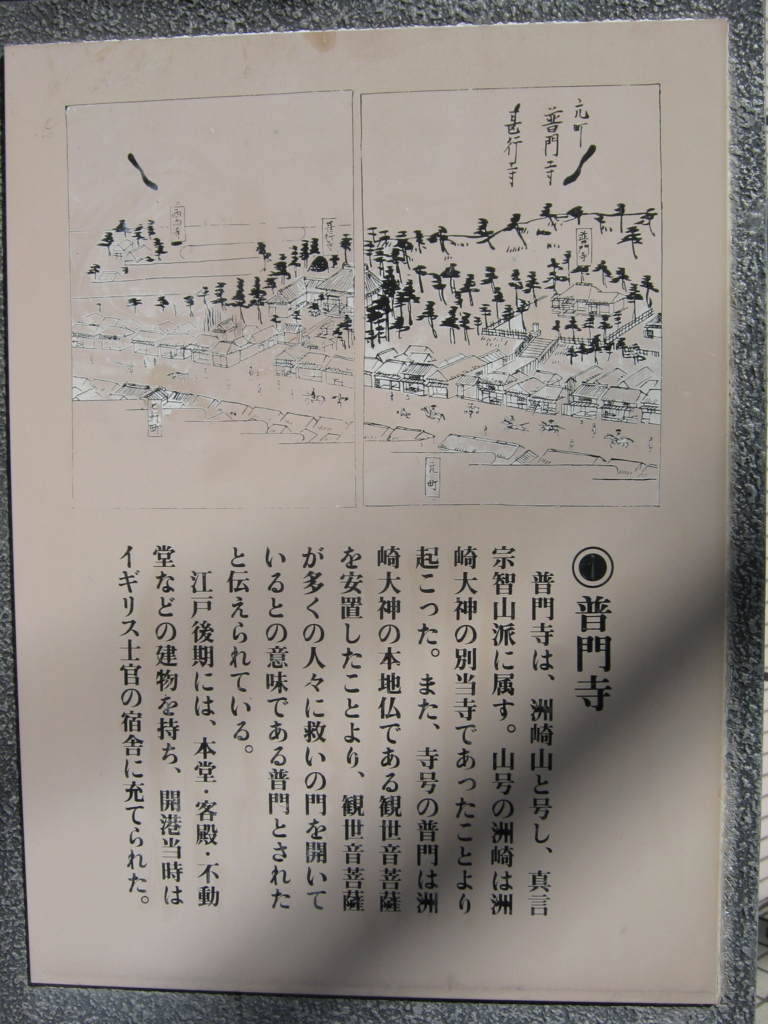 元町
普門寺
甚行寺
普門寺
元町
甚行寺
普門寺
普門寺は、洲崎山と号し、真言
宗智山派に属す。山号の洲崎は洲
崎大神の別当寺であったことより
起こった。また、寺号の普門は洲
崎大神の本地仏である観世音菩薩
を安置したことより、観世音菩薩
が多くの人々に救いの門を開いて
いるとの意味である普門とされた
と伝えられている。
江戸後期には、本堂・客殿・不動
堂などの建物を持ち、開港当時は
イギリス士官の宿舎に充てられた。